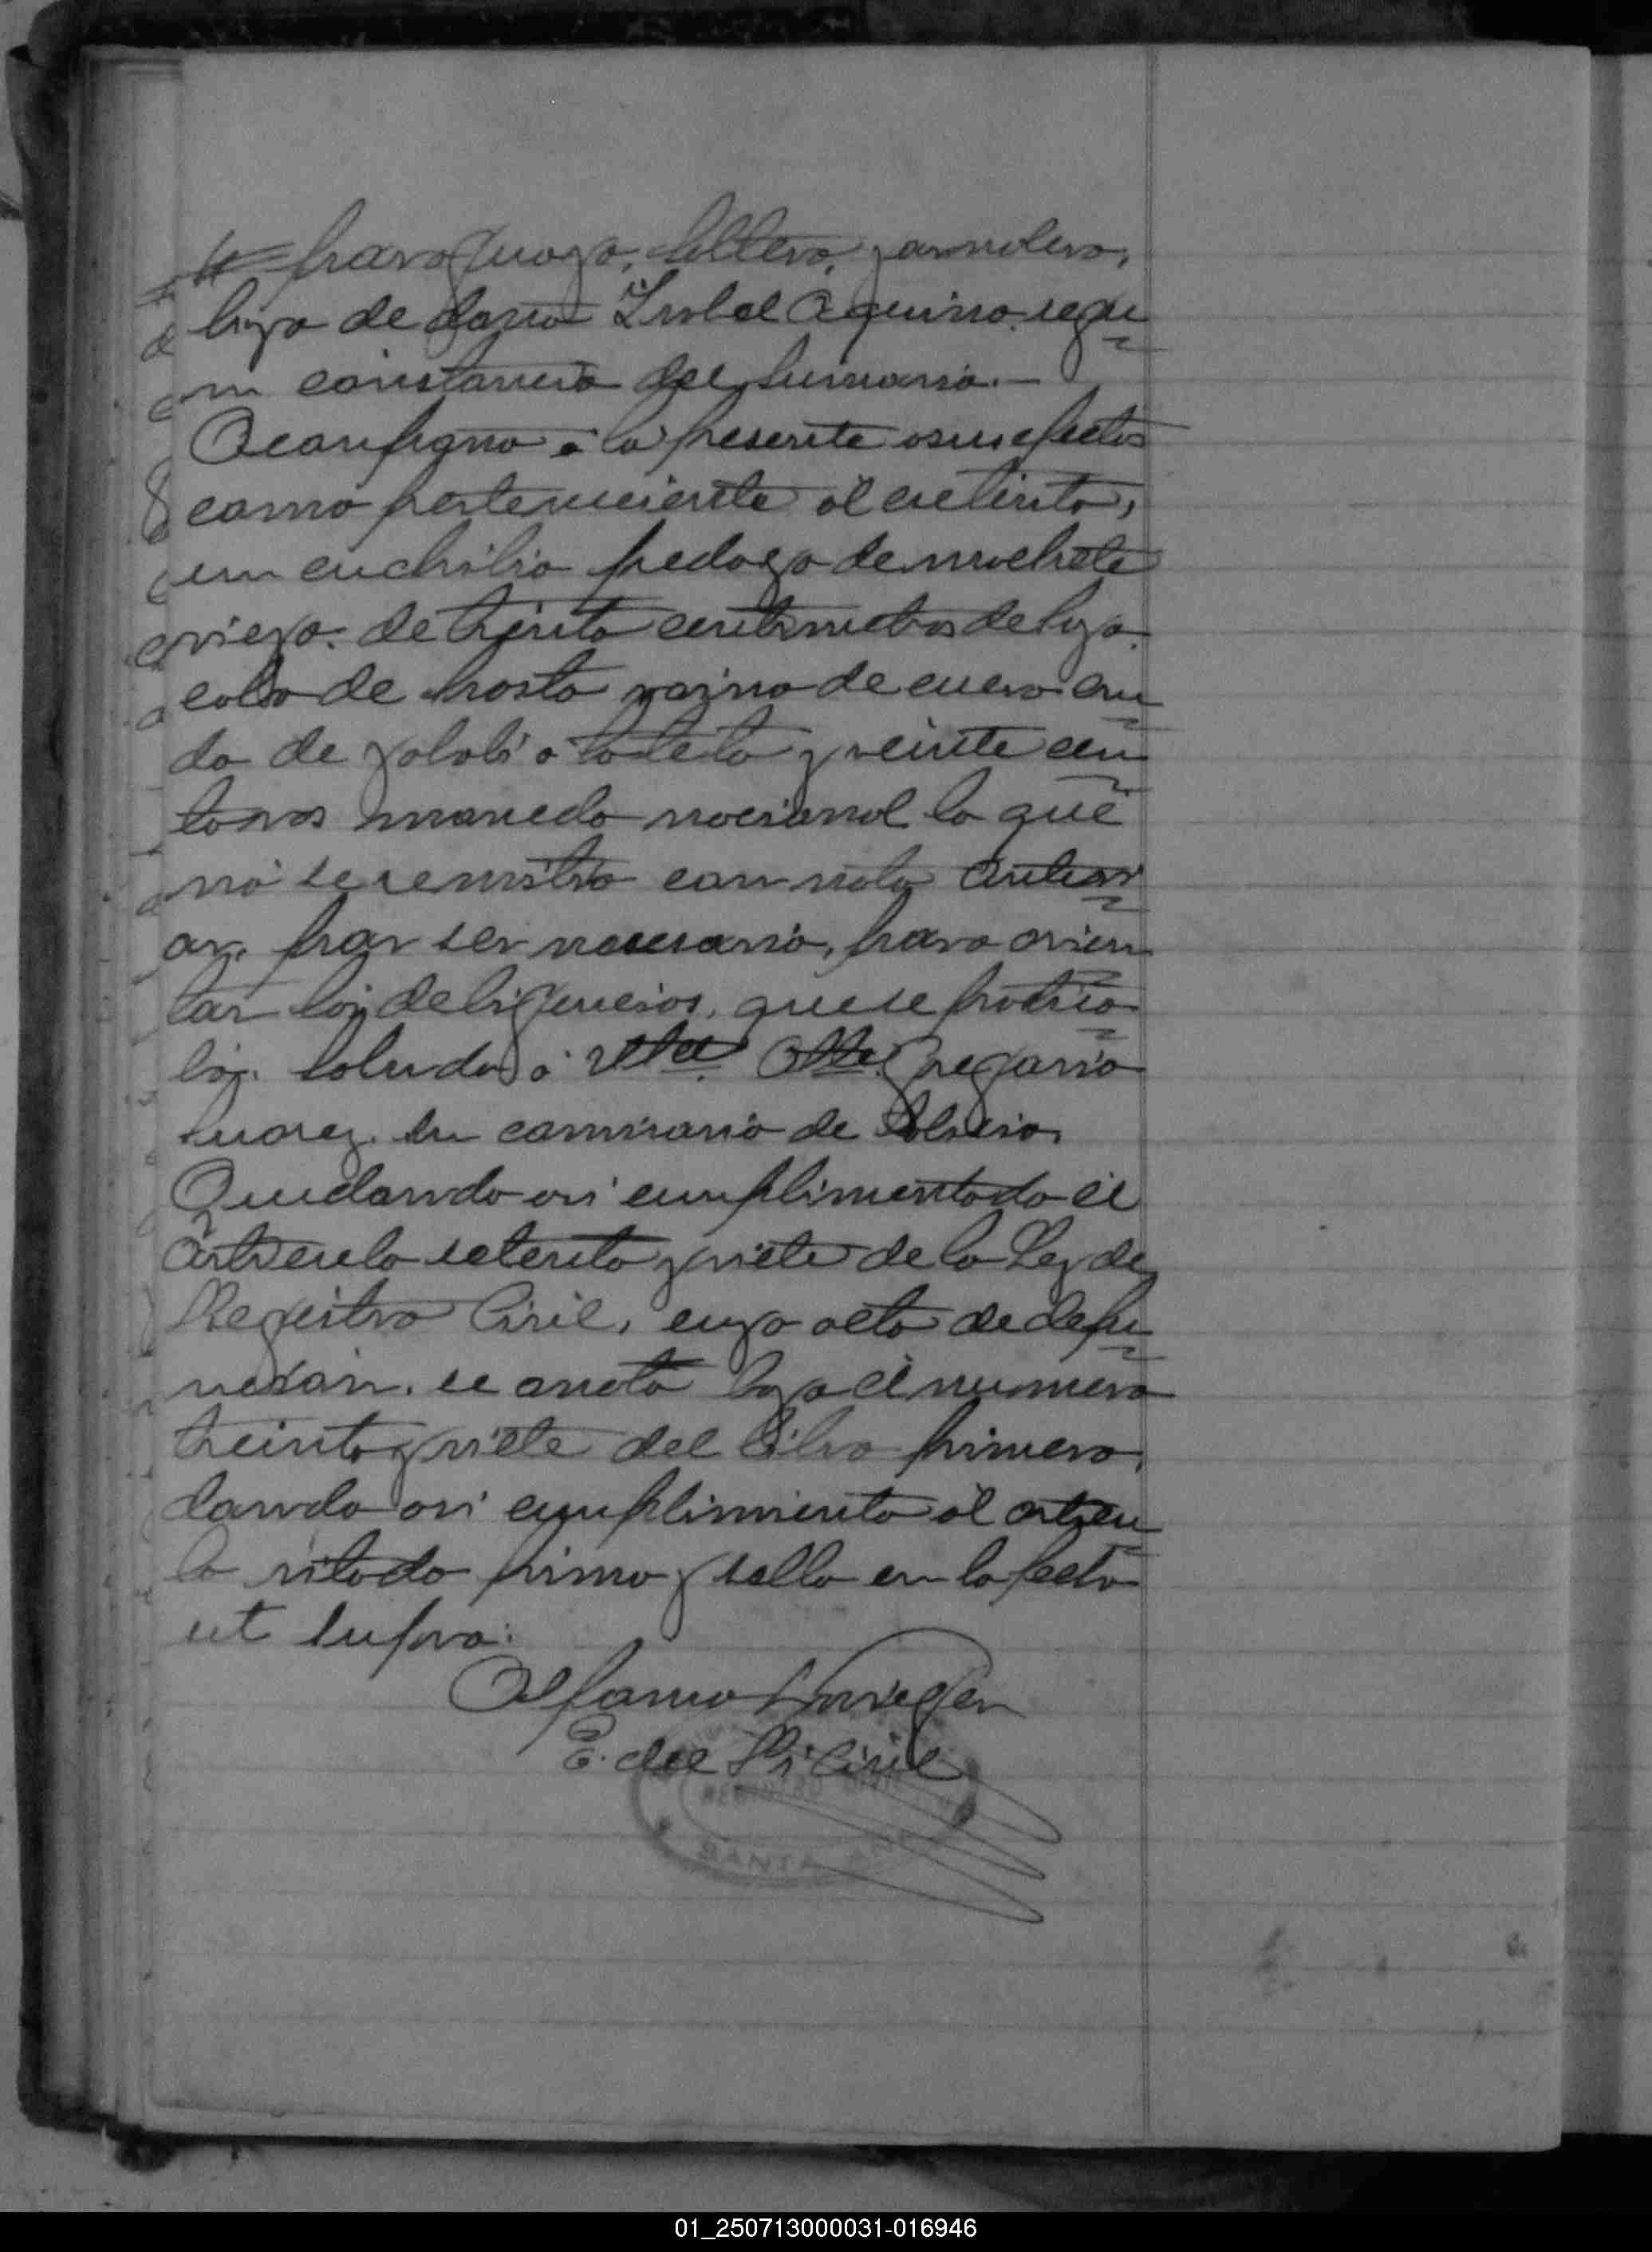 paraguayo, soltero, jornalero,
hijo de doña Isabel Aquino. segu
n constancia del sumario.—
Acompaño á la presente a sus efectos
como perteneciente al extinto,
un cuchillo pedazo de machete
viejo. de treinta centimetros de hoja
cabo de hasta vaina de cuero cru
do de y veinte cen
tavos moneda nacional lo que
no se remitió con nota anteri
or. por ser necesario, para orien
tar las deligencias, que se practica
ba. saluda á Gregorio
Suarez. Sub comisario de Policia.
Quedando asi cumplimentado el
articulo setenta y siete de la Ley de
Registro Civil, cuya acta de defu
nción. se anota bajo el numero
treinta y siete del Libro primero.
dando asi cumplimiento al articu
lo citado firmo y sello en la fecha
ut supra:
E. del R. Civil
REGISTRO CIVIL
SANTA ANA
01_250713000031-016946